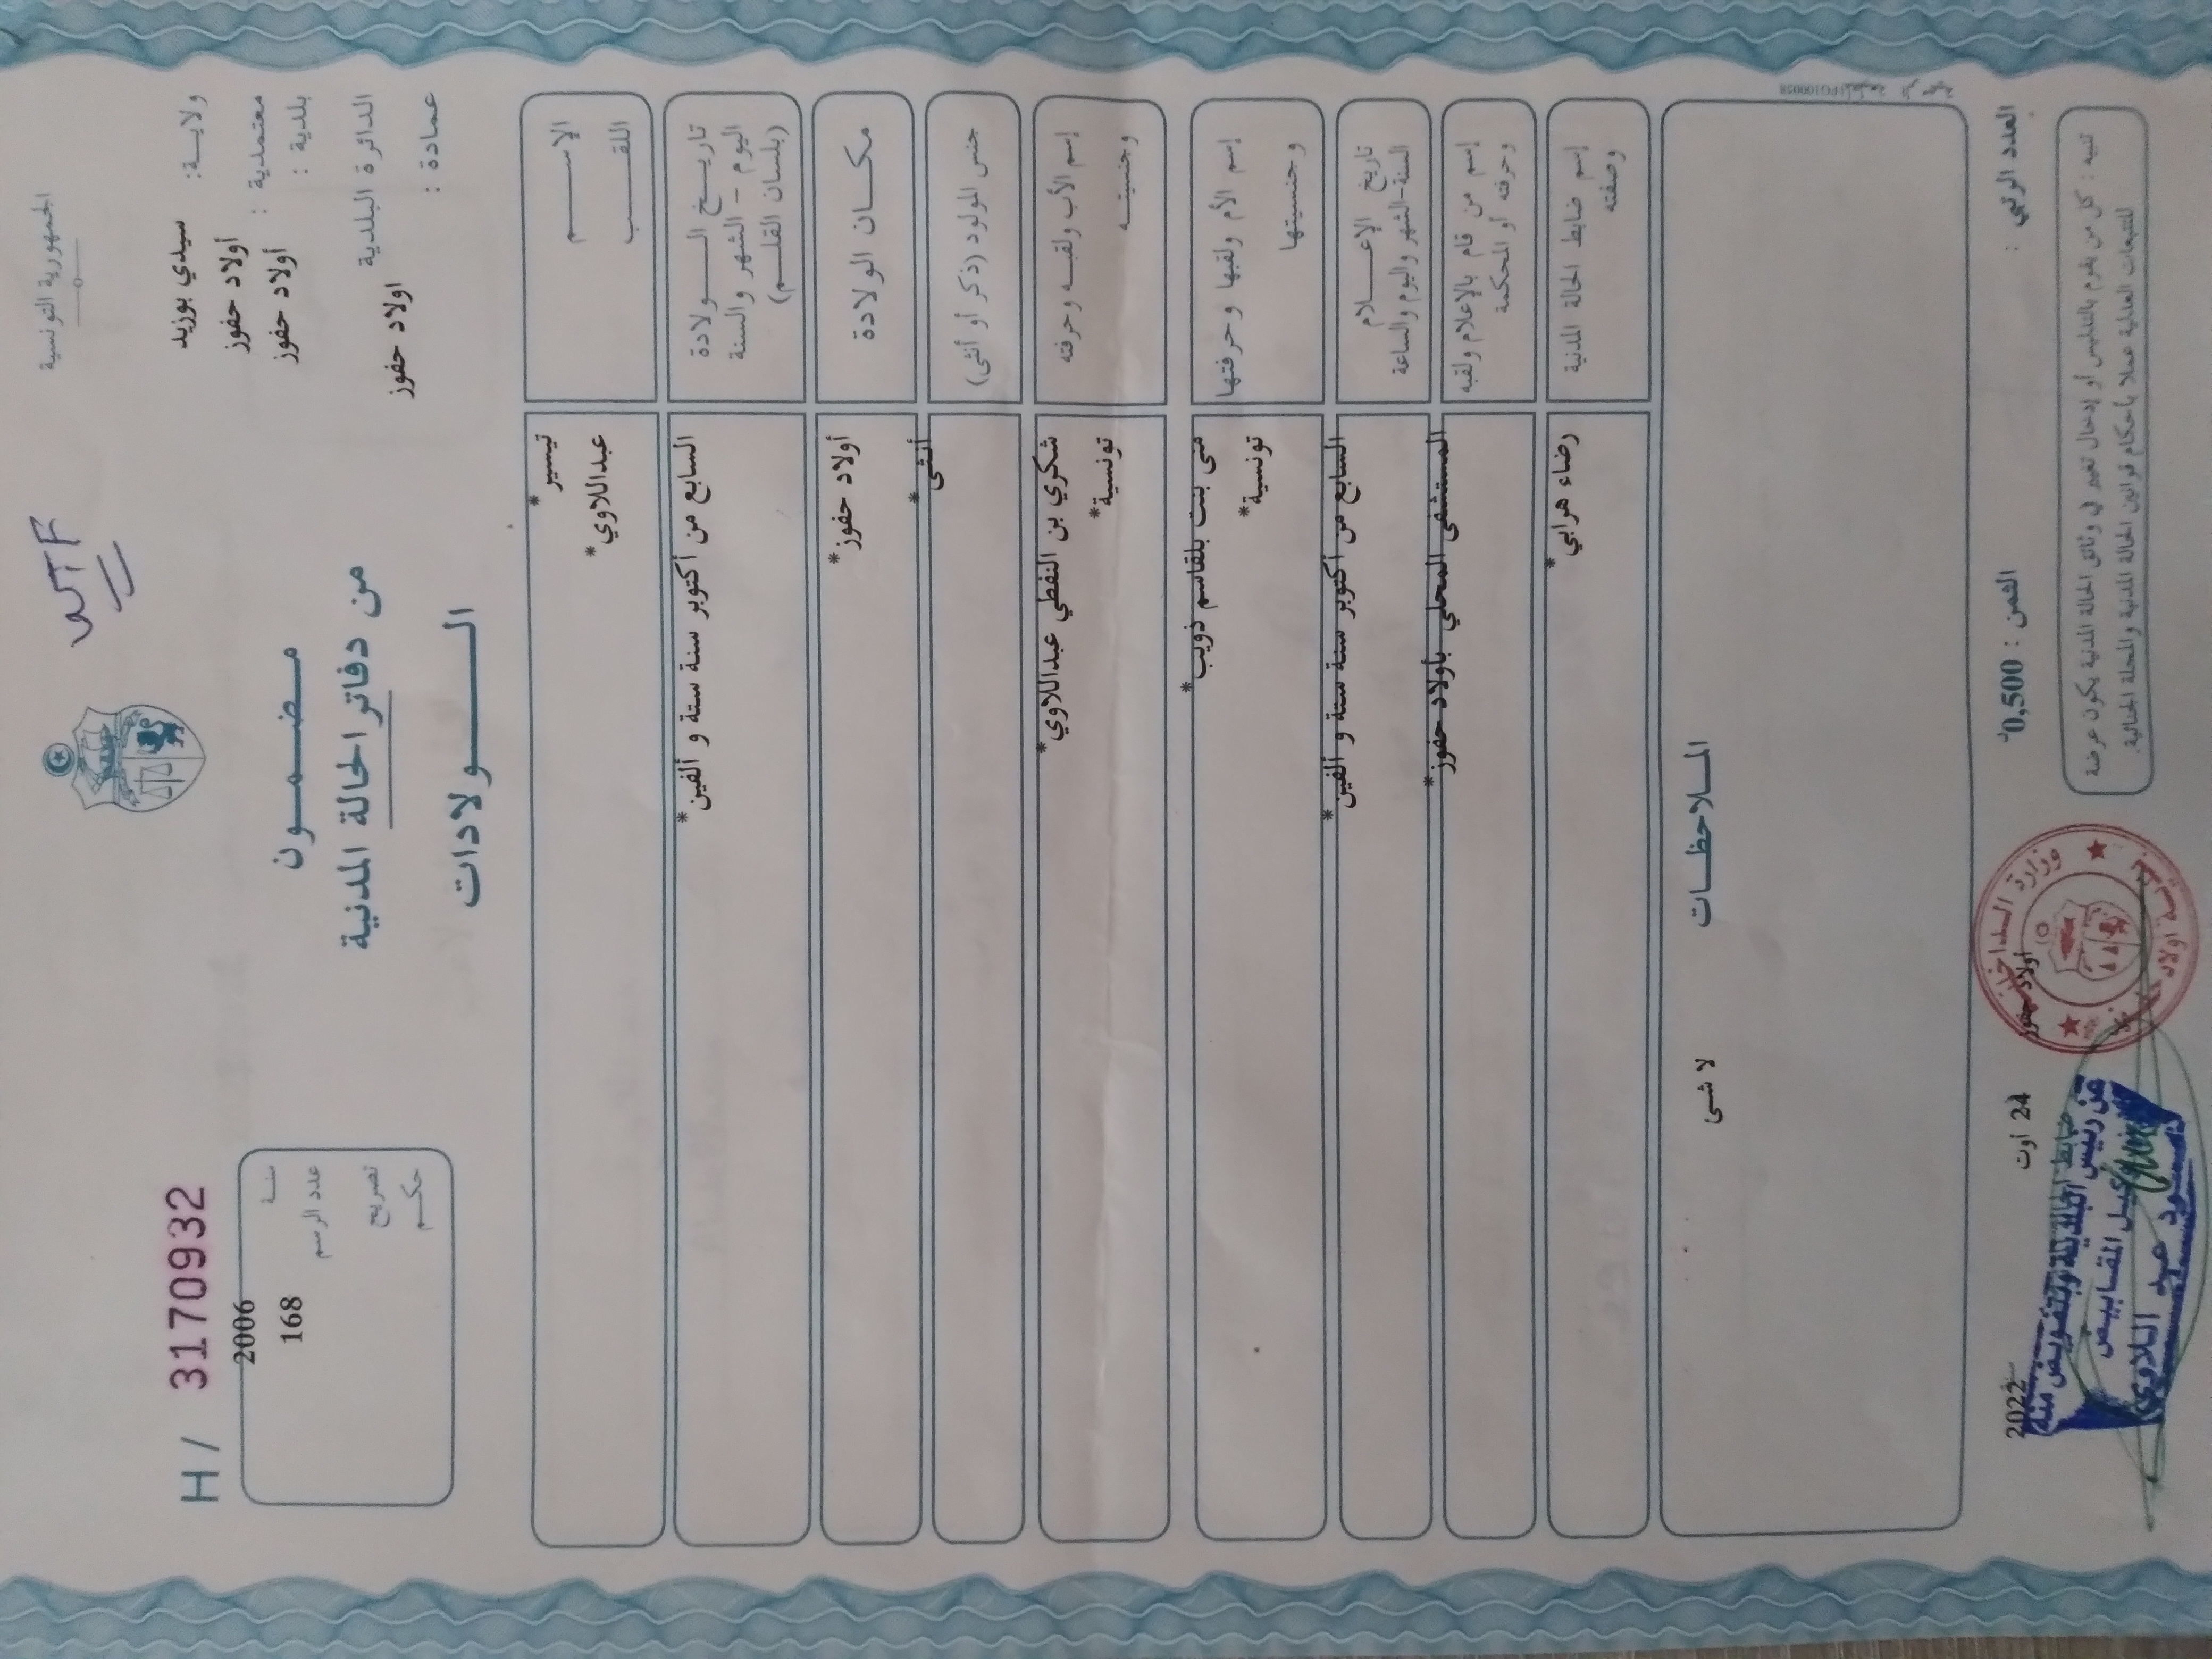 الجمهورية التونسية
ولاية: سيدي بوزيد
معتمدية : أولاد حفوز
بلدية : أولاد حفوز
الدائرة البلدية
اولاد حفوز
عمادة :
مضمون
من دفاتر الحالة المدنية
الولادات
H / 3170932
سنة 2006
عدد الرسم 168
تصريح
حكم
الإسم تيسير*
اللقب عبداللاوي*
تاريخ الولادة السابع من أكتوبر سنة ستة و ألفين*
اليوم - الشهر والسنة
(بلسان القلم)
مكان الولادة أولاد حفوز*
جنس المولود (ذكر أو أنثى) أنثى*
إسم الأب ولقبه وحرفته شكري بن النفطي عبداللاوي*
وجنسيته تونسية*
إسم الأم ولقبها وحرفتها منى بنت بلقاسم ذويب*
وجنسيتها تونسية*
تاريخ الإعلام السابع من أكتوبر سنة ستة و ألفين*
السنة-الشهر واليوم والساعة
إسم من قام بالإعلام ولقبه المستشفى المحلي بأولاد حفوز*
وحرفته أو المحكمة
إسم ضابط الحالة المدنية رضاء هرابي*
وصفته
الملاحظات
لا شى
العدد الرتبي :
الثمن : 0,500د
أولاد حفوز 24 أوت 2022
تنبيه : كل من يقوم بالتدليس أو إدخال تغيير في وثائق الحالة المدنية يكون عرضة
للتتبعات العدلية عملا بأحكام قوانين الحالة المدنية والمجلة الجنائية.
وزارة الداخلية
عن رئيس البلدية وبتفويض منه
وكيل المقابيض
عبد اللاوي